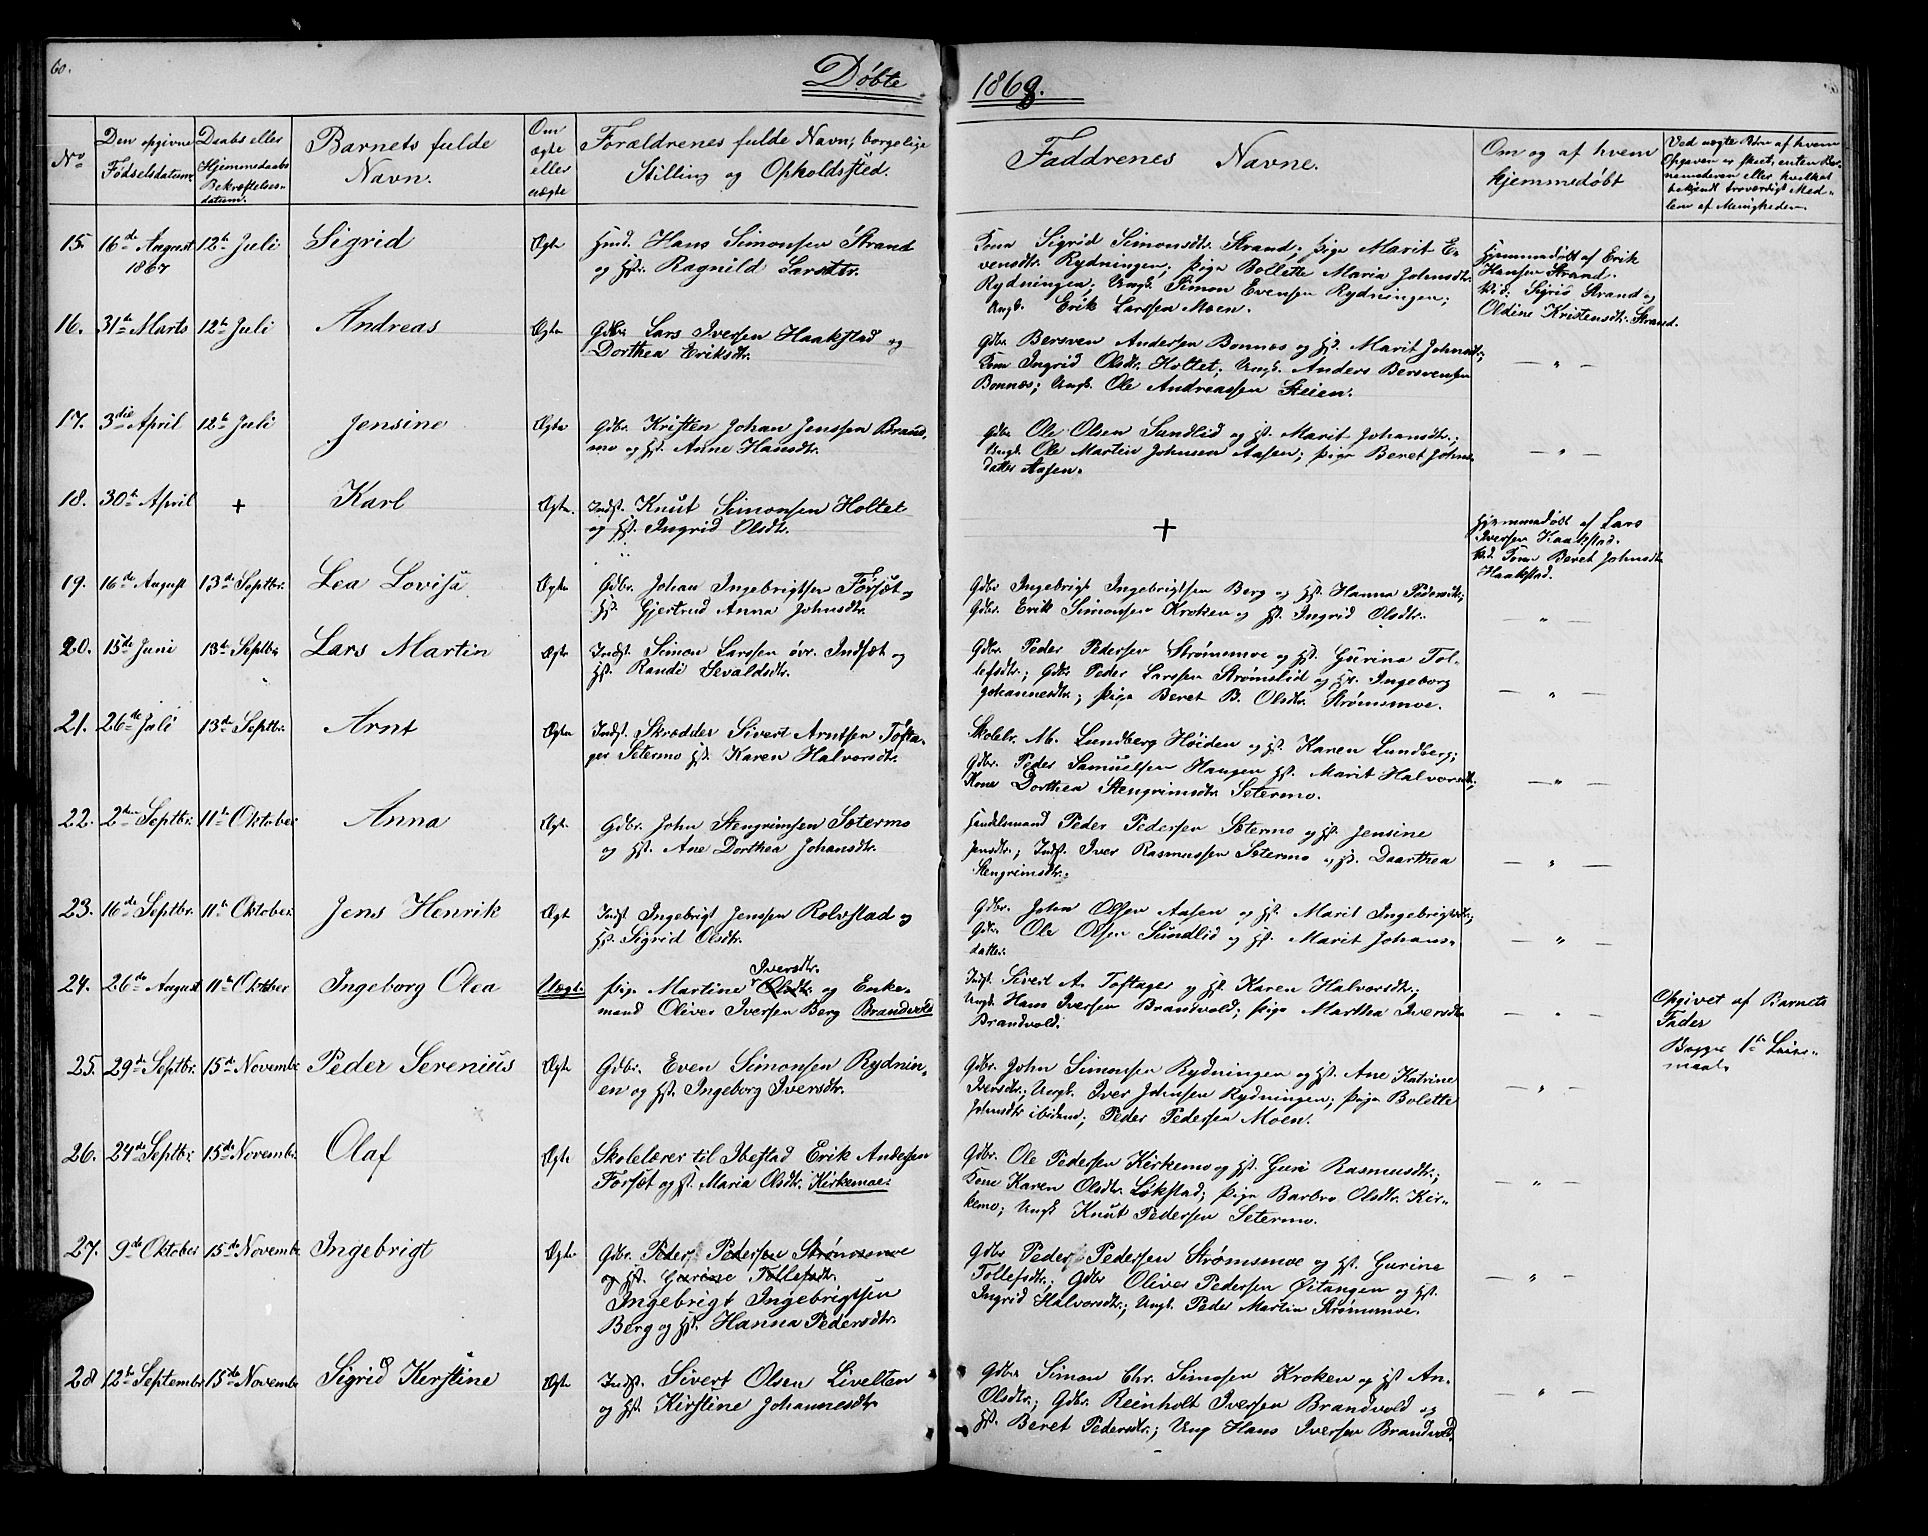 60.
Døbte 1868.
No
Den opgivne Fødselsdatum.
Daabs eller Hjemmedaabs Bekræftelses-datum.
Barnets fulde Navn.
Om ægte eller uægte
Forældrenes fulde Navn, borgelige Stilling og Opholdssted.
Faddrenes Navne.
Om og af hvem hjemmedøbt
Ved uægte Børn af hvem Opgaven er skeet, enten Barnemoderen eller hvilket bekjendt troværdigt Medlem af Menigheden.
15. 16de August 1867 12te Juli Sigrid Ægte
Hans Simonsen Strand
og Hst. Ragnild Larsdtr.
Kone Sigrid Simonsdtr. Strand; Pige Marit E-
vensdtr. Rydningen; Pige Bollette Maria Johnsdtr.
Rydningen; Ungk. Simon Evensen Rydningen;
Ungk. Erik Larssen Moen.
Hjemmedøbt af Erik
Hansen Strand.
Vid: Sigrid Strand og
Oldine Kristensdtr. Strand.
16. 31te Marts 12te Juli Andreas Ægte
Gdbr. Lars Iversen Haakstad og
Dorthea Eriksdtr.
Gdbr. Bersven Andersen Bonnes og Hst. Marit Johnsdtr;
Kone Ingrid Olsdtr. Holtet; Ungk. Anders Bersvensen
Bonnes; Ungk. Ole Andreassen Steien.
— " —
17. 3die April 12te Juli Jensine Ægte
Gdbr. Kristen Johan Jenssen Brand-
mo og Hst. Anne Hansdtr.
Gdbr. Ole Olsen Sundlid og Hst. Marit Johansdtr.;
Ungk. Ole Martin Johnsen Aasen; Pige Beret Johns-
datter Aasen.
— " —
18. 30te April + Karl Ægte.
Indst. Knut Simonsen Holtet
og Hst. Ingrid Olsdtr.
+
Hjemmedøbt af Lars
Iversen Haakstad.
Vid. Kone Beret Johnsdtr
Haakstad.
19. 16de August 13de Septbr. Lea Lovisa Ægte
Gdbr. Johan Ingebrigtsen Førsæt og
Hst. Gjertrud Anna Johnsdtr.
Gdbr Ingebrigt Ingebrigtsen Berg og Hst. Hanna Pedersdtr;
Gdbr. Erik Simonsen Kroken og Hst. Ingrid Olsdtr.
— " —
20. 15de Juni 13de Septbr Lars Martin Ægte
Indst. Simon Larssen øvr. Indsæt og
Hst. Randi Sevaldsdtr.
Gdbr. Peder Pedersen Strømsmoe og Hst. Gurina Tol-
lefsdtr.; Gdbr Peder Larssen Strømslid og Hst. Ingeborg
Johannesdtr.; Pige Beret B. Olsdtr. Strømsmoe.
— " —
21. 26de Juli 13de Septbr. Arnt Ægte
Indst. Skrædder Sivert Arntsen Tofta-
ger Setermo Hst. Karen Halvorsdtr.
Skolelr. M. Lundberg Høiden og Hst. Karen Lundberg;
Gdbr. Peder Samuelsen Haugen Hst. Marit Halvorsdtr;
Kone Dorthea Stengrimsdtr. Setermo.
— " —
22. 2den Septbr. 11te Oktober Anna Ægte
Gdbr. John Stengrimsen Setermo
og Hst. Ane Dorthea Johansdtr.
Handelsmand Peder Pedersen Setermo og Hst. Jensine
Jensdtr.; Indst. Iver Rasmussen Setermo og Hst. Daarthea
Stengrimsdtr.
— " —
23. 16de Septbr. 11te Oktober. Jens Henrik Ægte
Indst. Ingebrigt Jenssen Rolvstad og
Hst. Sigrid Olsdtr.
Gdbr. John Olsen Aasen og Hst. Marit Ingebrigtsdtr;
Gdbr. Ole Olsen Sundlid og Hst. Marit Johans-
datter.
— " —
24. 26de August 11te Oktober Ingeborg Olea Uægte
Iversdtr.
Pige Martine Olsdtr. og Enke-
mand Oliver Iversen Berg Brandvold
Indst. Sivert A. Toftager og Hst. Karen Halvorsdtr.;
Ungk. Hans Iversen Brandvold; Pige Martha Iversdtr
Brandvold.
— " —
Opgivet af Barnets
Fader
Begges 1te Leiers-
maal.
25. 29de Septbr. 15de Novembr Peder Serenius Ægte
Gdbr. Even Simonsen Rydnin-
en og Hst. Ingeborg Iversdtr.
Gdbr. John Simonsen Rydningen og Hst. Ane Katrine
Iversdtr.; Ungk. Iver Johnsen Rydningen; Pige Bolette
Johnsdtr ibidem; Peder Pedersen Moen.
— " —
26. 24de Septbr. 15de Novembr. Olaf Ægte
Skolelærer til Ibestad Erik Andersen
Forsæt og Hst. Maria Olsdtr. Kirkemoe.
Gdbr. Ole Pedersen Kirkemo og Hst. Guri Rasmusdtr.;
Kone Karen Olsdtr. Løkstad; Pige Barbro Olsdtr. Kir-
kemo; Ungk Knut Pedersen Setermo.
— " —
27. 9de Oktober 15de Novembr. Ingebrigt Ægte
Gdbr. Peder Pedersen Strømsmoe
og Hst. Gurine Tollefsdtr.
Ingebrigt Ingebrigtsen
Berg og Hst. Hanna Pedersdtr.
Gdbr Peder Pedersen Strømsmoe og Hst. Gurine
Tollefsdtr.; Gdbr Oliver Pedersen Øitangen og Hst.
Ingrid Halvorsdtr.; Ungk. Peder Martin Strømsmoe.
— " —
28 12te Septembr. 15de Novembr Sigrid Kerstine Ægte
Indst. Sivert Olsen Livelten
og Hst. Kirstine Johannesdtr.
Gdbr Simon Chr. Simosen Kroken og Hst An-
Olsdtr.; Gdbr. Reinholt Iversen Brandvold og
Hst. Beret Pedersdtr.; Ung Hans Iversen Brandvold.
— " —